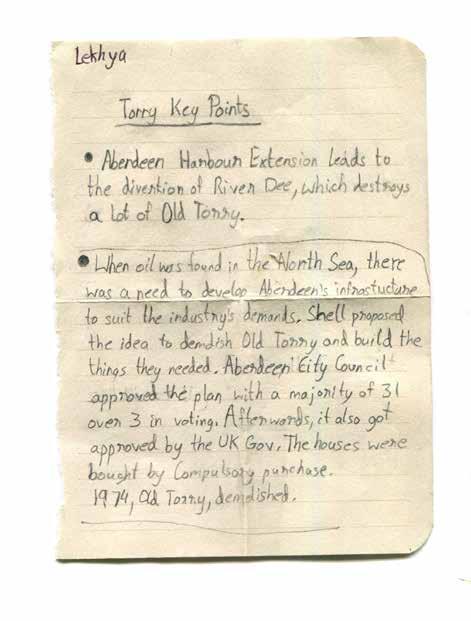 Lekhya
Torry Key Points
• Aberdeen Harbour Extension leads to
the divertion of River Dee, which destroys
a lot of Old Torry.
• When oil was found in the North Sea, there
was a need to develop Aberdeen's infrastucture
to suit the industry's demands. Shell proposed
the idea to demolish Old Torry and build the
things they needed. Aberdeen City Council
approved the plan with a majority of 31
over 3 in voting. Afterwords, it also got
approved by the UK Gov. The houses were
bought by Compulsory purchase.
1974, Old Torry, demolished.